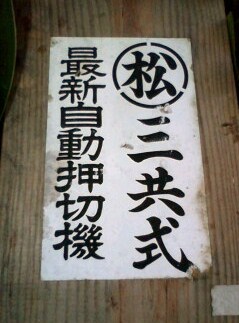 松三共式
最新自動押切機